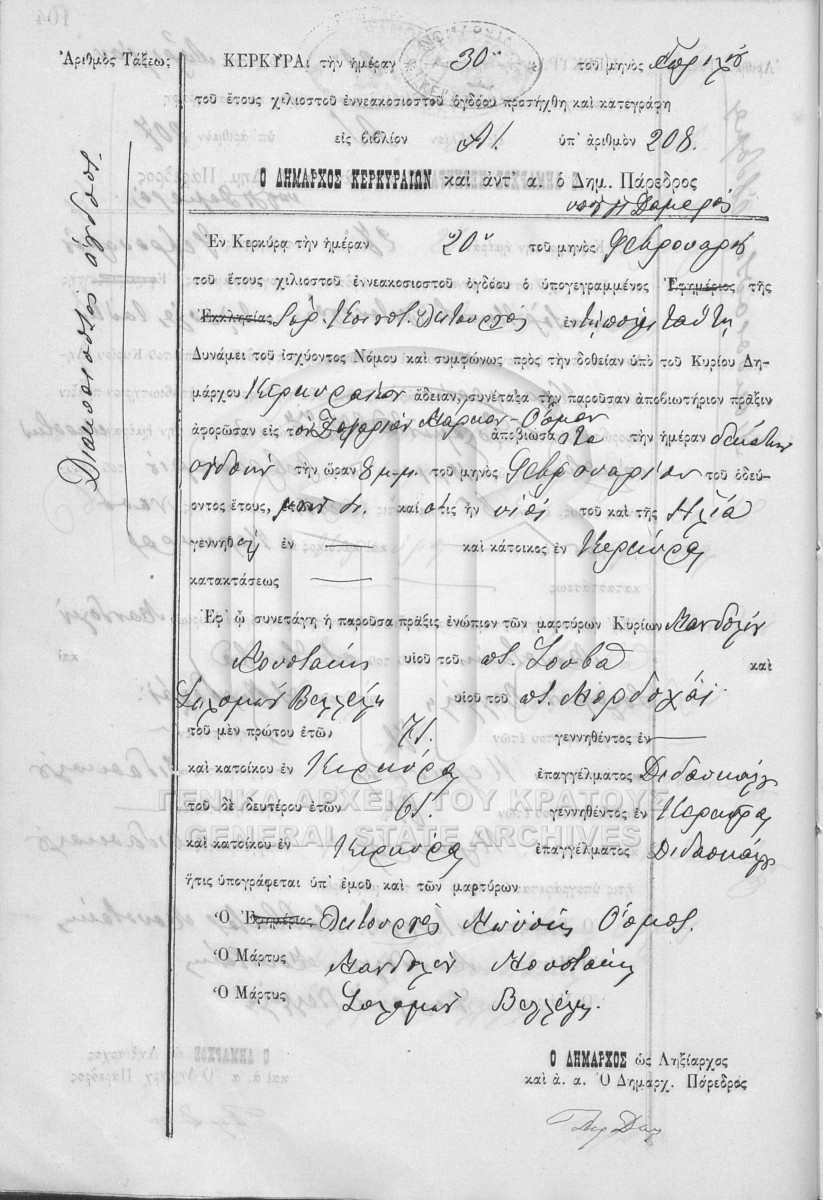 Ἀριθμὸς Τάξεως
Διακοσιοστὸς ὄγδοος.
ΚΕΡΚΥΡΑ, τὴν ἡμέραν 30ὴν τοῦ μηνὸς Ἀπριλίου
τοῦ ἔτους χιλιοστοῦ ἐννεακοσιοστοῦ ὀγδόου προσήχθη καὶ κατεγράφη
εἰς βιβλίον Α1. ὑπ' ἀριθμὸν 208.
Ο ΔΗΜΑΡΧΟΣ ΚΕΡΚΥΡΑΙΩΝ καὶ ἀντ' α. ὁ Δημ. Πάρεδρος
Ἐν Κερκύρᾳ τὴν ἡμέραν 20ὴν τοῦ μηνὸς Φεβρουαρίου
τοῦ ἔτους χιλιοστοῦ ἐννεακοσιοστοῦ ὀγδόου ὁ ὑπογεγραμμένος Ἐφημέριος τῆς
Ἐκκλησίας Ἰσρ. Κοινότ. Λειτουργὸς ἐν τῇ πόλει ταύτῃ
Δυνάμει τοῦ ἰσχύοντος Νόμου καὶ συμφώνως πρὸς τὴν δοθεῖσαν ὑπὸ τοῦ Κυρίου Δη-
μάρχου Κερκυραίων ἄδειαν, συνέταξα τὴν παροῦσαν ἀποβιωτήριον πρᾶξιν
ἀφορῶσαν εἰς τὸν Μάρκον Ὄσμον ἀποβιώσαντα τὴν ἡμέραν δεκάτην
ὀγδόην τὴν ὥραν 8 μ.μ. τοῦ μηνὸς Φεβρουαρίου τοῦ ὁδεύ-
οντος ἔτους, καὶ ὅστις ἦν υἱὸς τοῦ καὶ τῆς Ἠλία
γεννηθεὶς ἐν — καὶ κάτοικος ἐν Κερκύρᾳ
κατακτάσεως —
Ἐφ' ᾧ συνετάγη ἡ παροῦσα πρᾶξις ἐνώπιον τῶν μαρτύρων Κυρίων Μανδολὶν
Μουστάκης υἱοῦ τοῦ ποτ. καὶ
Σολομὼν Βελλέλης υἱοῦ τοῦ ποτ. Μορδοχάι
τοῦ μὲν πρώτου ἐτῶν 71. γεννηθέντος ἐν —
καὶ κατοίκου ἐν Κερκύρᾳ ἐπαγγέλματος Διδασκάλου
τοῦ δὲ δευτέρου ἐτῶν 61. γεννηθέντος ἐν Κερκύρᾳ
καὶ κατοίκου ἐν Κερκύρᾳ ἐπαγγέλματος Διδασκάλου
ἥτις ὑπογράφεται ὑπ' ἐμοῦ καὶ τῶν μαρτύρων
Ὁ Ἐφημέριος Λειτουργὸς Μωϋσῆς Ὄσμος.
Ὁ Μάρτυς Μανδολὶν Μουστάκης
Ὁ Μάρτυς Σολομὼν Βελλέλης.
Ο ΔΗΜΑΡΧΟΣ ὡς Ληξίαρχος
καὶ ἀ. α. Ὁ Δημαρχ. Πάρεδρος
ΓΕΝΙΚΑ ΑΡΧΕΙΑ ΤΟΥ ΚΡΑΤΟΥΣ
GENERAL STATE ARCHIVES